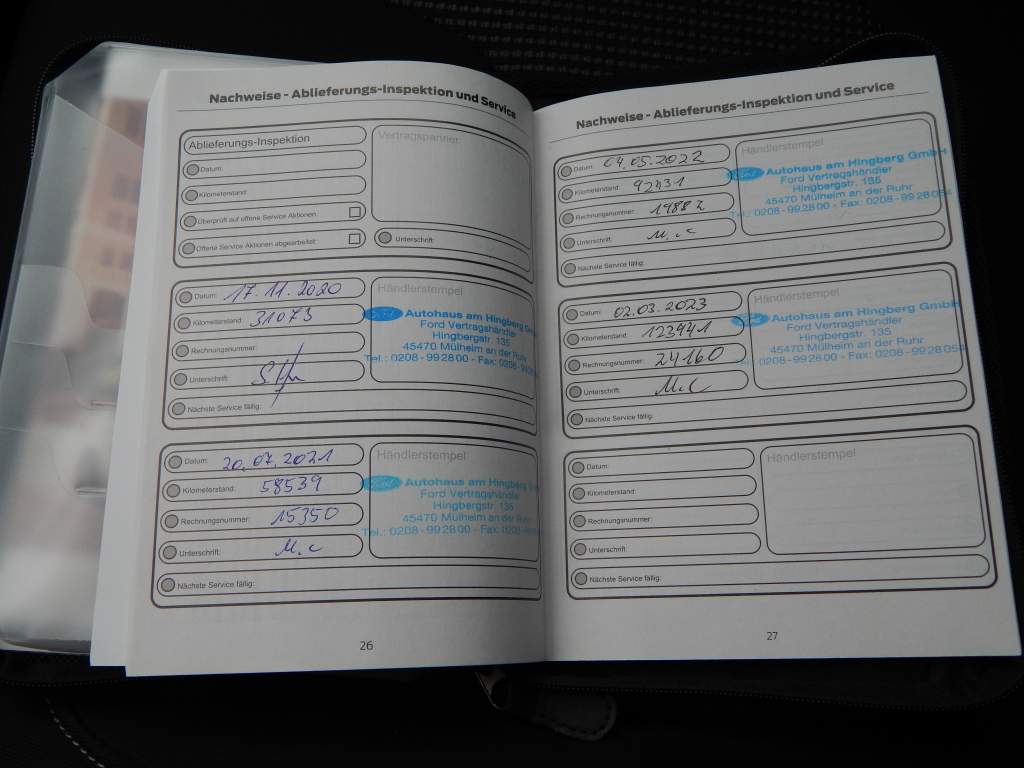 Nachweise - Ablieferungs-Inspektion und Service
Ablieferungs-Inspektion
Vertragspartner
Datum:
Kilometerstand:
Überprüft auf offene Service Aktionen:
Offene Service Aktionen abgearbeitet:
Unterschrift:
Datum: 17.11.2020
Kilometerstand: 31073
Rechnungsnummer:
Unterschrift:
Nächste Service fällig:
Händlerstempel
Autohaus am Hingberg Gm
Ford Vertragshändler
Hingbergstr. 135
45470 Mülheim an der Ruhr
Tel.: 0208 - 99 28 00 - Fax: 0208 - 99
Datum: 20.07.2021
Kilometerstand: 58539
Rechnungsnummer: 15350
Unterschrift: M.c
Nächste Service fällig:
Händlerstempel
Autohaus am Hingberg
Ford Vertragshändle
Hingbergstr. 135
45470 Mülheim an der Ruh
Tel.: 0208 - 99 28 00 - Fax: 0208
26
Nachweise - Ablieferungs-Inspektion und Service
Datum: 04.05.2022
Kilometerstand: 92431
Rechnungsnummer: 19882
Unterschrift: M.c
Nächste Service fällig:
Händlerstempel
Autohaus am Hingberg GmbH
Ford Vertragshändler
Hingbergstr. 135
45470 Mülheim an der Ruhr
Tel.: 0208 - 99 28 00 - Fax: 0208 - 99 28 054
Datum: 02.03.2023
Kilometerstand: 123441
Rechnungsnummer: 24160
Unterschrift: M.c
Nächste Service fällig:
Händlerstempel
Autohaus am Hingberg GmbH
Ford Vertragshändler
Hingbergstr. 135
45470 Mülheim an der Ruhr
Tel.: 0208 - 99 28 00 - Fax: 0208 - 99 28 054
Datum:
Kilometerstand:
Rechnungsnummer:
Unterschrift:
Nächste Service fällig:
Händlerstempel
27